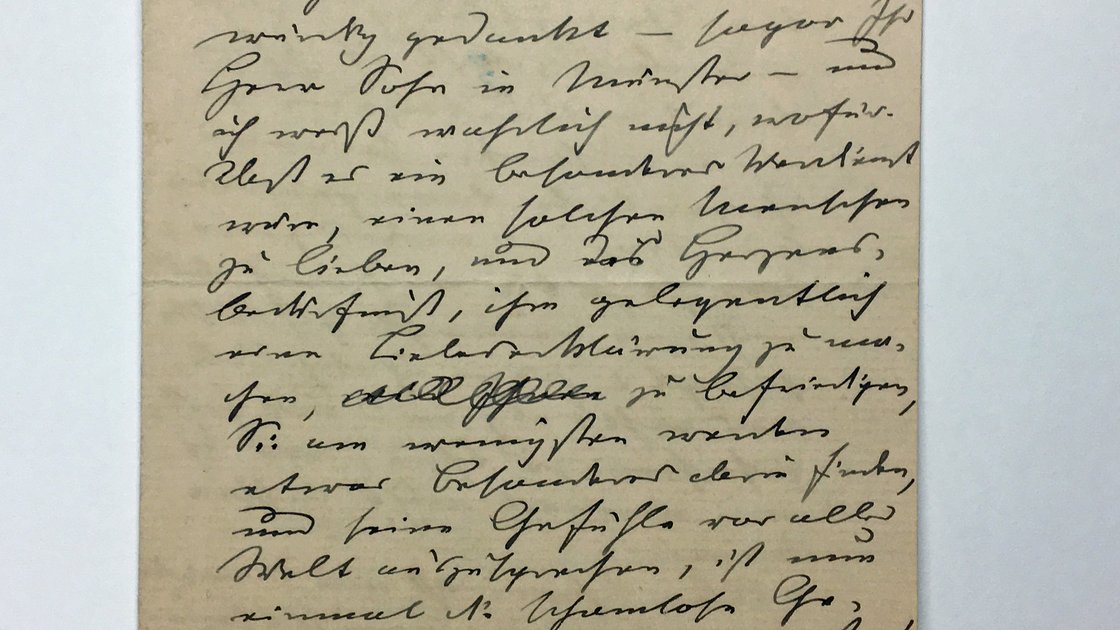 gedankt — sogar Ihr
Herr Sohn in Münster — und
ich weiß wahrlich nicht, wofür.
Daß es ein besonderes Verdienst
wäre, einen solchen Menschen
zu lieben, und das Herzens-
bedürfniß, ihm gelegentlich
eine Liebeserklärung zu ma-
chen, zu befriedigen,
Sie am wenigsten werden
etwas besonderes darin finden,
und seine Gefühle vor aller
Welt auszusprechen, ist nun
einmal die schamlose Ge-